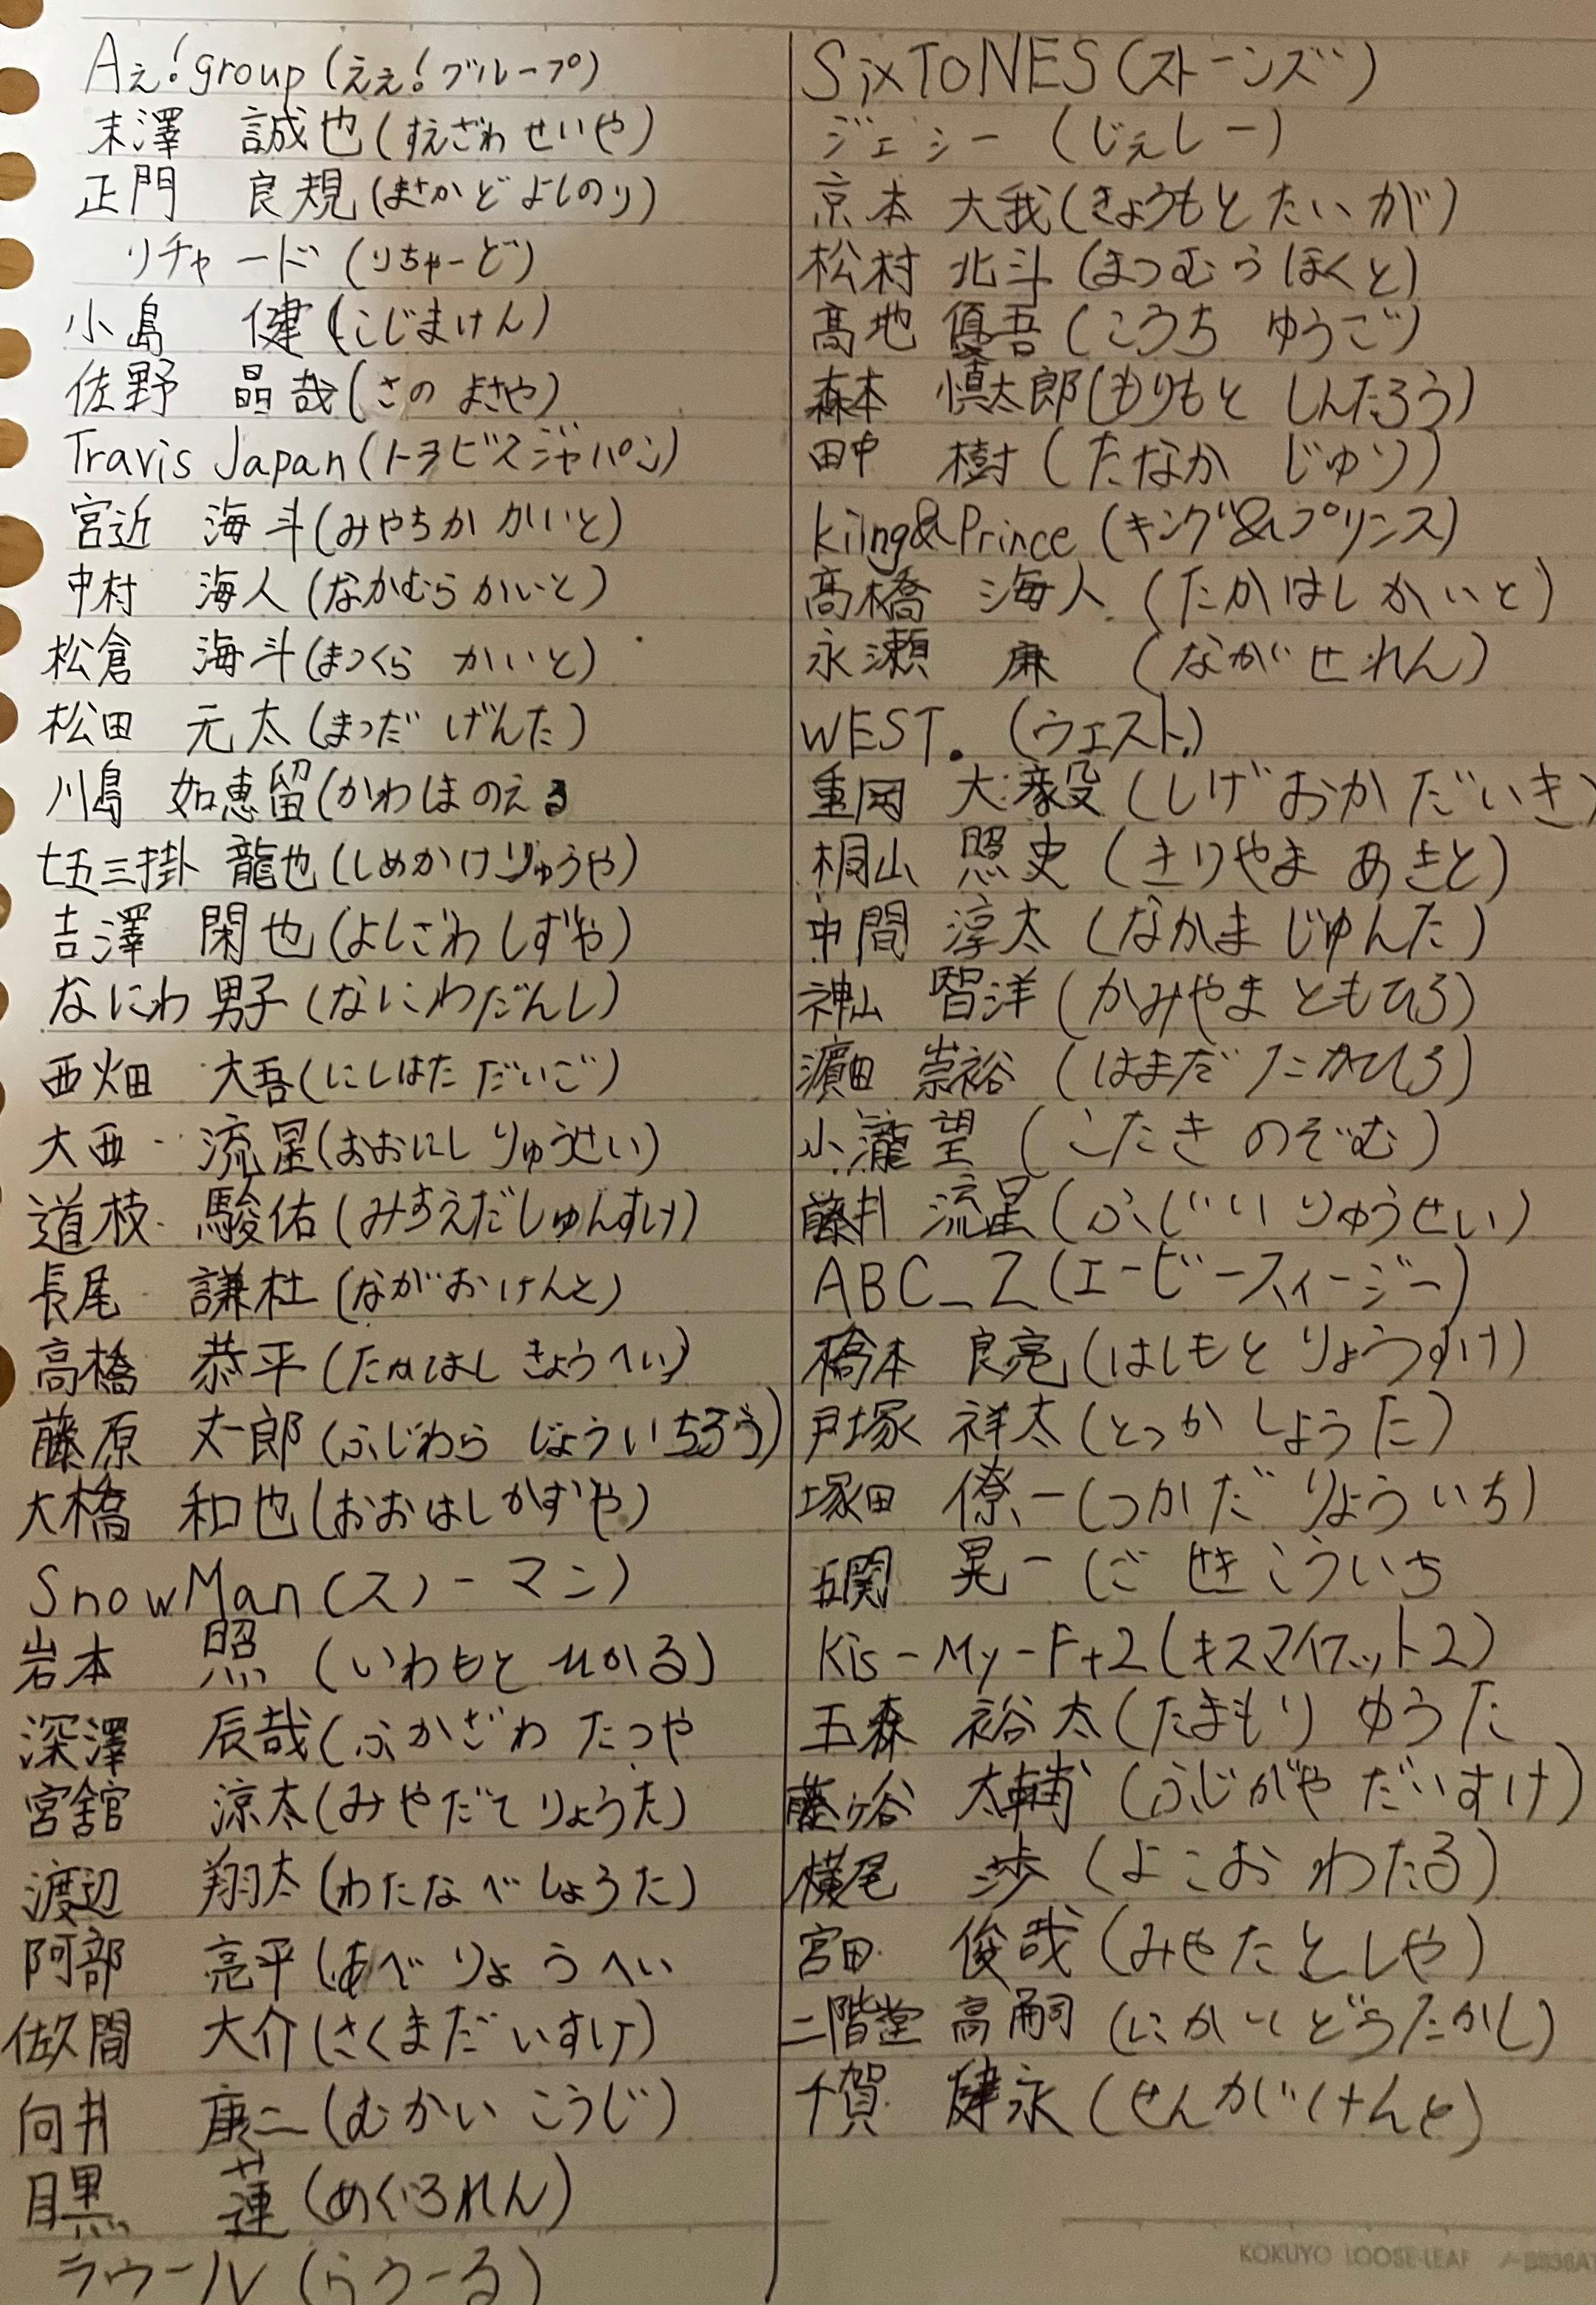 Aぇ!group(ええ!グループ)
末澤 誠也(すえざわ せいや)
正門 良規(まさかど よしのり)
リチャード(りちゃーど)
小島 健(こじまけん)
佐野 晶哉(さの まさや)
Travis Japan(トラビスジャパン)
宮近 海斗(みやちか かいと)
中村 海人(なかむら かいと)
松倉 海斗(まつくら かいと)
松田 元太(まつだ げんた)
川島 如恵留(かわしまのえる
七五三掛 龍也(しめかけりゅうや)
吉澤 閑也(よしざわ しずや)
なにわ男子(なにわだんし)
西畑 大吾(にしはた だいご)
大西 流星(おおにし りゅうせい)
道枝 駿佑(みちえだしゅんすけ)
長尾 謙杜(ながお けんと)
高橋 恭平(たかはし きょうへい)
藤原 丈一郎(ふじわら じょういちろう)
大橋 和也(おおはしかずや)
SnowMan(スノーマン)
岩本 照(いわもと ひかる)
深澤 辰哉(ふかざわ たつや
宮舘 涼太(みやだて りょうた)
渡辺 翔太(わたなべ しょうた)
阿部 亮平(あべ りょうへい
佐久間 大介(さくまだいすけ)
向井 康二(むかい こうじ)
目黒 蓮(めぐろれん)
ラウール(らうーる)
SixTONES(ストーンズ)
ジェシー(じぇしー)
京本 大我(きょうもと たいが)
松村 北斗(まつむら ほくと)
髙地 優吾(こうち ゆうご)
森本 慎太郎(もりもと しんたろう)
田中 樹(たなか じゅり)
kiing&Prince(キング&プリンス)
髙橋 海人(たかはし かいと)
永瀬 廉(ながせ れん)
WEST.(ウェスト.)
重岡 大毅(しげおか だいき)
桐山 照史(きりやま あきと)
中間 淳太(なかま じゅんた)
神山 智洋(かみやま ともひろ)
濵田 崇裕(はまだ たかひろ)
小瀧 望(こたき のぞむ)
藤井 流星(ふじい りゅうせい)
ABC_Z(エービースィージー)
橋本 良亮(はしもと りょうすけ)
戸塚 祥太(とつか しょうた)
塚田 僚一(つかだ りょういち)
五関 晃一(ごせき こういち
Kis-My-Ft2(キスマイフット2)
玉森 裕太(たまもり ゆうた
藤ヶ谷 太輔(ふじがや だいすけ)
横尾 渉(よこお わたる)
宮田 俊哉(みやた としや)
二階堂 高嗣(にかいどうたかし)
千賀 健永(せんが けんと)
KOKUYO LOOSE-LEAF